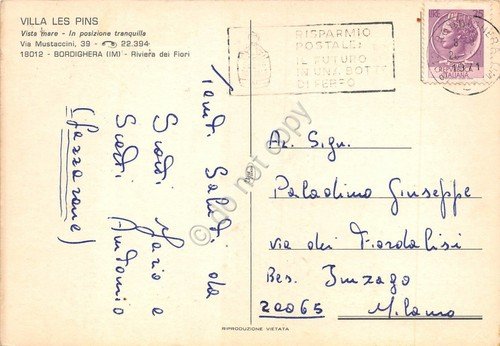 VILLA LES PINS
Vista mare - In posizione tranquilla
Via Mustaccini, 39 - 22.394
18012 - BORDIGHERA (IM) - Riviera dei Fiori
RISPARMIO
POSTALE:
IL FUTURO
IN UNA BOTTE
DI FERRO
1971
ITALIANA
Tanti Saluti da
Sciotti Mario e
Sciotti Antonio
do not copy
Al Sign.
Paladino Giuseppe
via dei Fiordalisi
Bes. Inzago
20065 Milano
RIPRODUZIONE VIETATA